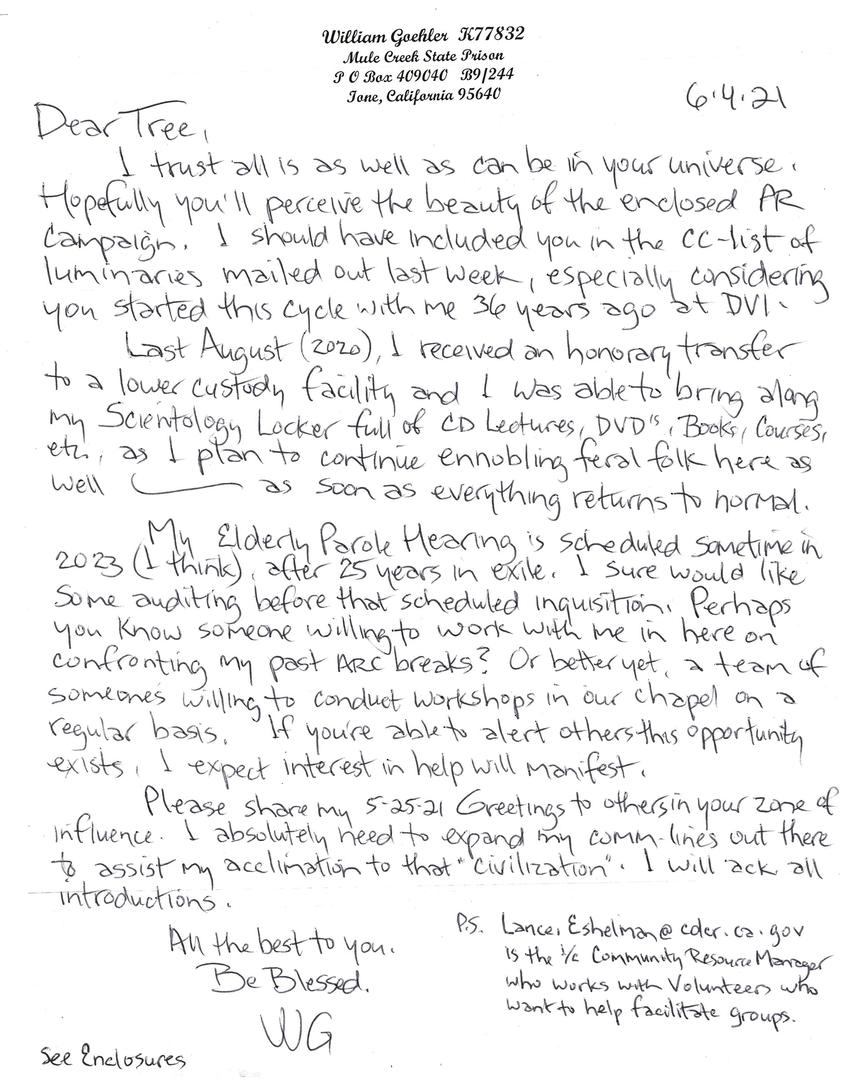 William Goehler K77832
Mule Creek State Prison
P O Box 409040 B9/244
Ione, California 95640
6.4.21
Dear Tree,
I trust all is as well as can be in your universe.
Hopefully you'll perceive the beauty of the enclosed AR
Campaign. I should have included you in the CC-list of
luminaries mailed out last week, especially considering
you started this cycle with me 36 years ago at DVI.
Last August (2020), I received an honorary transfer
to a lower custody facility and I was able to bring along
my Scientology Locker full of CD Lectures, DVD's, Books, Courses,
etc, as I plan to continue ennobling feral folk here as
well as soon as everything returns to normal.
My Elderly Parole Hearing is scheduled sometime in
2023 (I think), after 25 years in exile. I sure would like
some auditing before that scheduled inquisition. Perhaps
you know someone willing to work with me in here on
confronting my past ARC breaks? Or better yet, a team of
someones willing to conduct workshops in our chapel on a
regular basis. If you're able to alert others this opportunity
exists, I expect interest in help will manifest.
Please share my 5-25-21 Greetings to others in your zone of
influence. I absolutely need to expand my comm-lines out there
to assist my acclimation to that "civilization". I will ack all
introductions.
All the best to you.
Be Blessed.
WG
See Enclosures
P.S. Lance.Eshelman@cdcr.ca.gov
is the I/C Community Resource Manager
who works with Volunteers who
want to help facilitate groups.